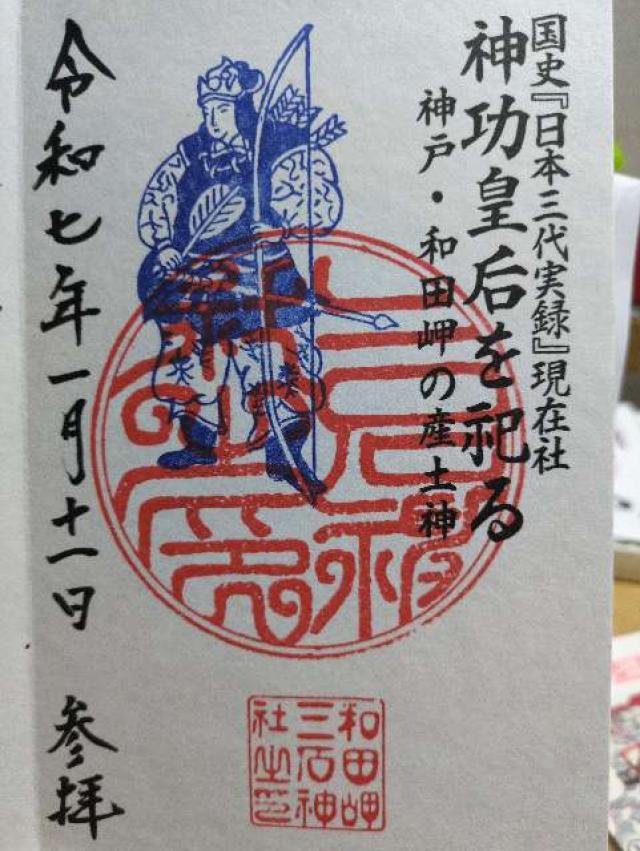 国史『日本三代実録』現在社
神功皇后を祀る
神戸・和田岬の産土神
三石神社之印
令和七年一月十一日 参拝
和田岬
三石神
社之印